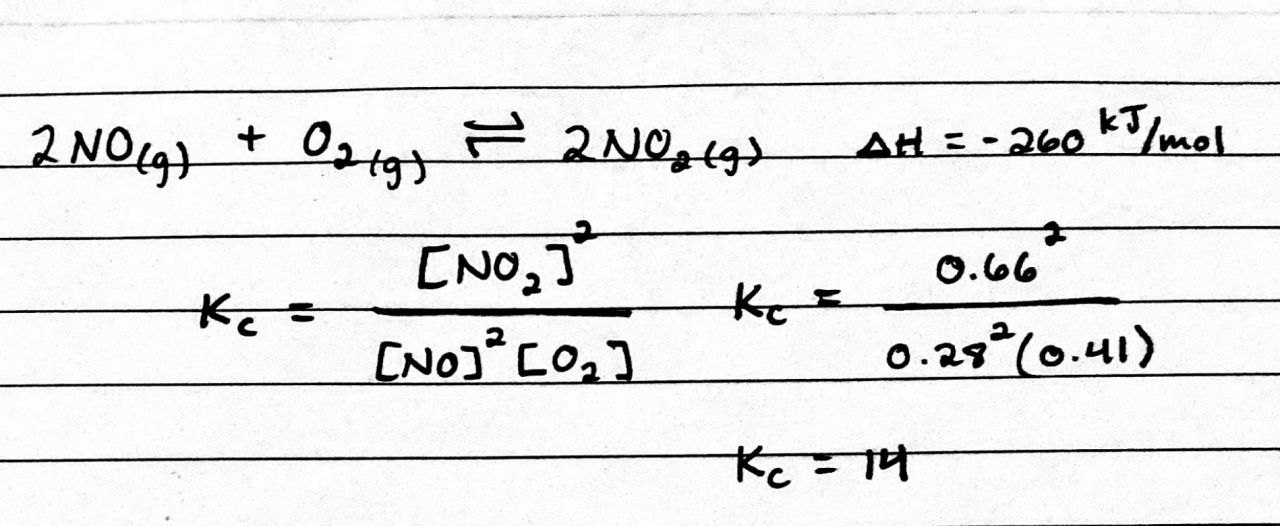 2NO(g) + O₂(g) ⇌ 2NO₂(g) ΔH = -260 kJ/mol
Kc = [NO₂]² / [NO]² [O₂] Kc = 0.66² / 0.28² (0.41)
Kc = 14